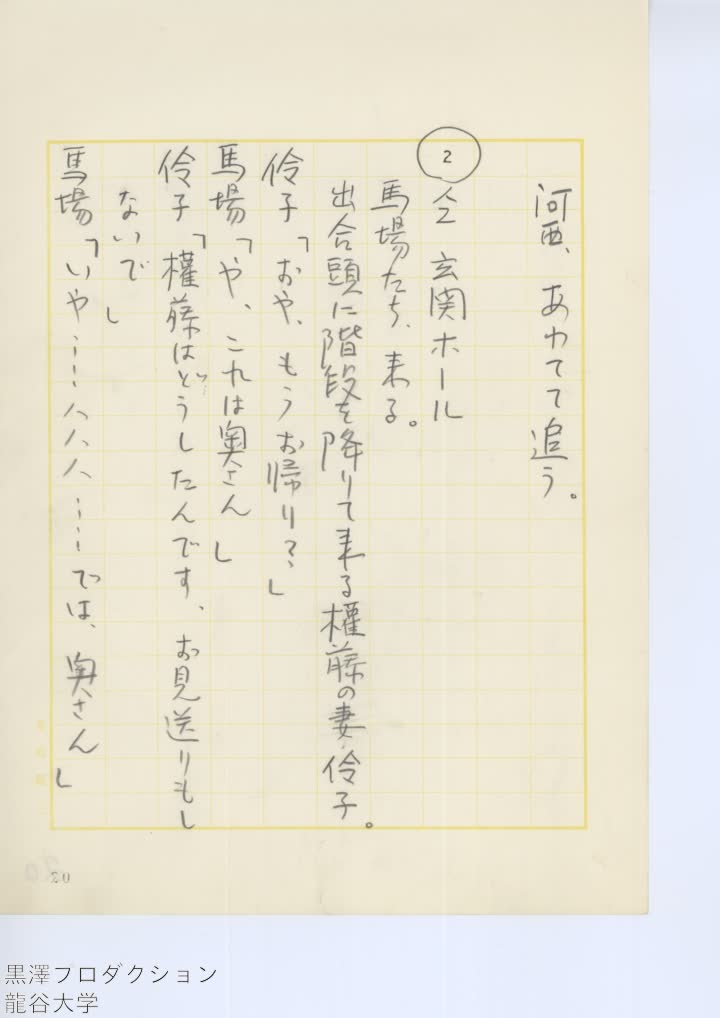 河西、あわてて追う。
2 仝 玄関ホール
馬場たち、来る。
出合頭に階段を降りて来る権藤の妻伶子。
伶子「おや、もうお帰り?」
馬場「や、これは奥さん」
伶子「権藤はどうしたんです、お見送りもし
ないで」
馬場「いや……ハハハ……では、奥さん」
20
黒澤プロダクション
龍谷大学